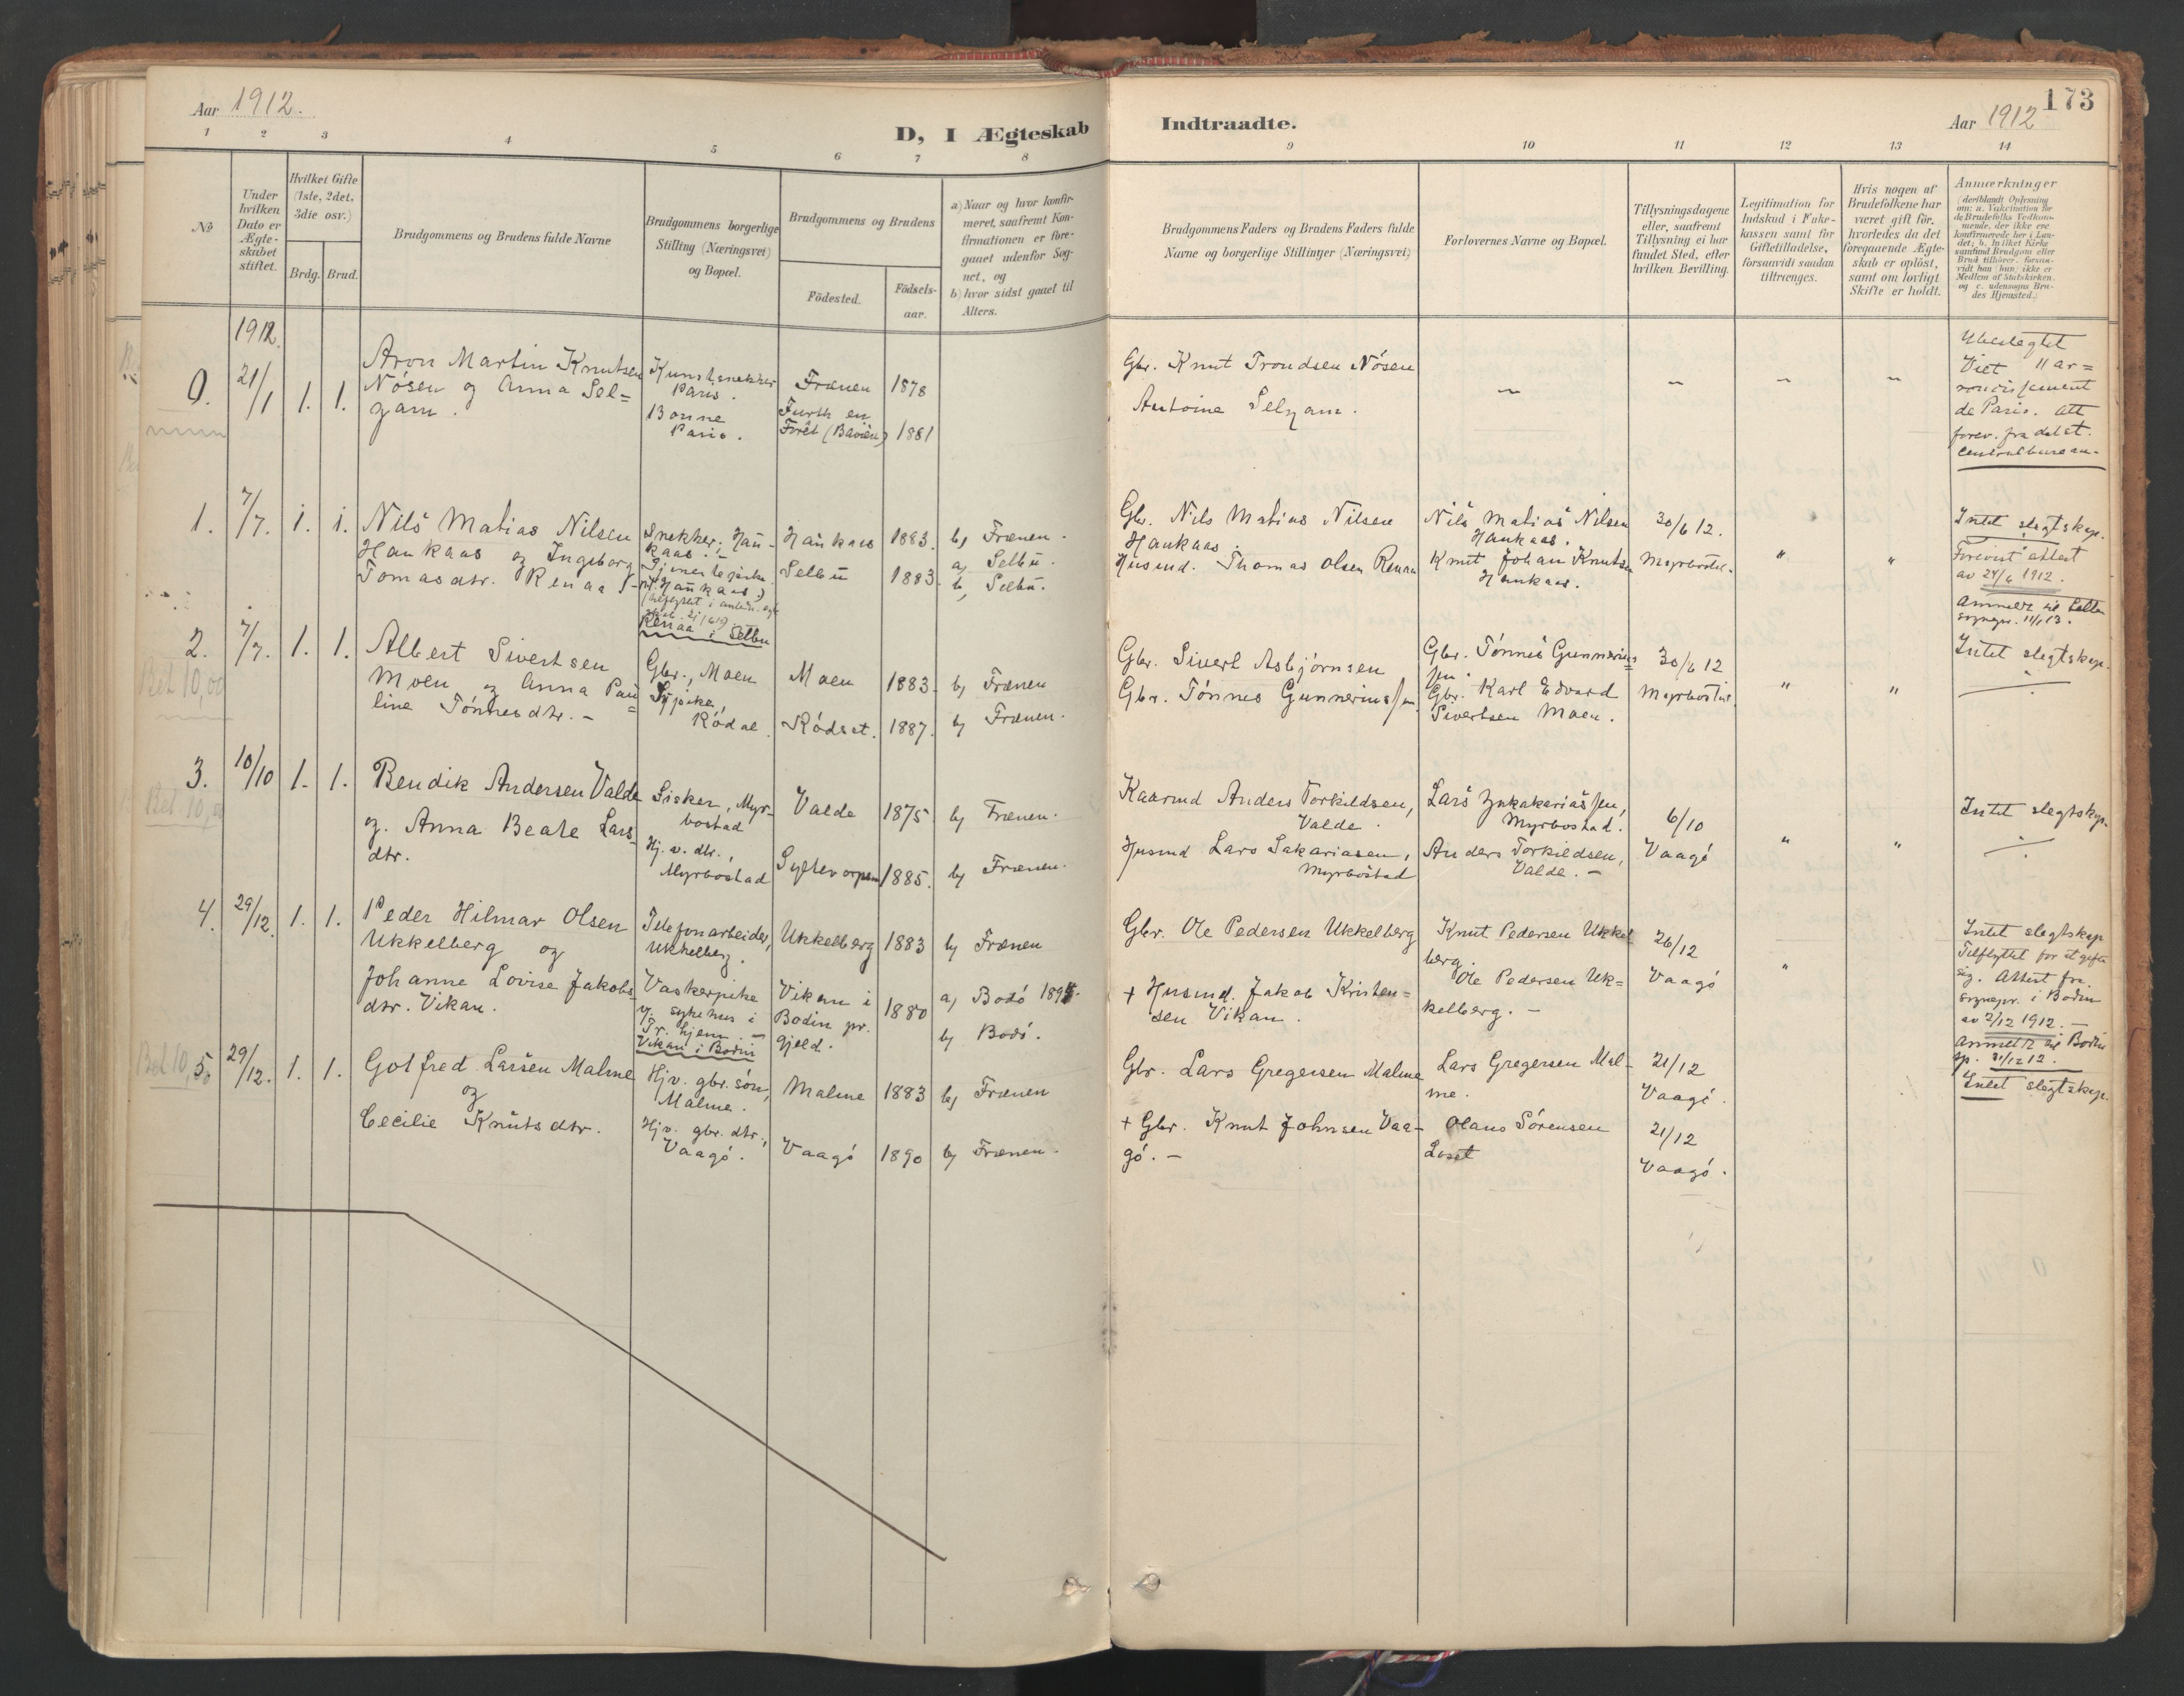 Aar 1912.
D, I Ægteskab
Indtraadte.
Aar 1912
173
1 2 3 4 5 6 7 8 9 10 11 12 13 14
No
Under hvilken Dato er Ægteskabet stiftet.
Hvilket Gifte (1ste, 2det, 3die osv.)
Brdg. Brud.
Brudgommens og Brudens fulde Navne
Brudgommens borgerlige Stilling (Næringsvei) og Bopæl.
Brudgommens og Brudens
Födested.
Födsels-aar.
a) Naar og hvor konfirmeret, saafremt Konfirmationen er foregaaet udenfor Sognet, og
b) hvor sidst gaaet til Alters.
Brudgommens Faders og Brudens Faders fulde Navne og borgerlige Stillinger (Næringsvei)
Forlovernes Navne og Bopæl.
Tillysningsdagene eller, saafremt Tillysning ei har fundet Sted, efter hvilken Bevilling.
Legitimation for Indskud i Enkekassen samt for Giftetilladelse, forsaavidt saadan tiltrænges.
Hvis nogen af Brudefolkene har været gift för, hvorledes da det foregaaende Ægteskab er oplöst, samt om lovligt Skifte er holdt.
Anmærkninger
1912.
0. 21/1 1. 1.
Aron Martin Knutsen
Nösen og Anna Sel=
zam.
Kunstsnekker
Paris.
Bonne
Paris.
Frænen 1878
Furth en
Forêt (Bavière) 1881
Gbr. Knut Trondsen Nösen
Antoine Selzam.
Ubeslegtet
Viet 11 ar=
rondissement
de Paris. Att
forev. fra det st.
centralbureau.
1. 7/7. 1. 1.
Nils Matias Nilsen
Haukaas og Ingeborg
Tomasdtr. Renaa
Snekker, Hau-
kaas.
Tjenestepike
Haukaas.
Renaa i Selbu
Haukaas 1883. b) Frænen.
Selbu 1883. a) Selbu.
b) Selbu.
Gbr. Nils Matias Nilsen
Haukaas.
Husmd. Thomas Olsen Renaa
Nils Matias Nilsen
Haukaas.
Knut Johan Knutsen
Haukaas.
30/6 12.
Myrbostad.
" "
Intet slegtskap.
Forevist attest
av 24/6 1912.
Anmeldt til Selbu
sognepr. 11/1 13.
2. 7/7. 1. 1.
Bet 10,00
Albert Sivertsen
Moen og Anna Pau=
line Tönnesdtr. -
Gbr., Moen
Sypike,
Rödal.
Moen 1883. b) Frænen
Rödset. 1887. b) Frænen.
Gbr. Sivert Asbjörnsen
Gbr. Tönnes Gunneriussen
Gbr. Tönnes Gunnerius=
sen.
Gbr. Karl Edvard
Sivertsen Moen.
30/6 12
Myrbostad.
" "
Intet slegtskap.
3. 10/10 1. 1.
Bet. 10,00
Bendik Andersen Valde
og Anna Beate Lars-
dtr.
Fisker, Myr-
bostad
Hj. v. dtr.,
Myrbostad
Valde 1875. b) Frænen.
Syltevorpen 1885. b) Frænen.
Kaarmd Anders Torkildsen,
Valde.
Husmd Lars Sakariasen,
Myrbostad
Lars Zakakariassen,
Myrbostad.
Anders Torkildsen,
Valde. -
6/10
Vaagö
" "
Intet slegtskap.
4. 29/12. 1. 1.
Peder Hilmar Olsen
Ukkelberg og
Johanne Lovise Jakobs-
dtr. Vikan.
Telefonarbeider,
Ukkelberg.
Vaskerpike
v. sykehus i
Tr. hjem -
Vikan i Bodin
Ukkelberg 1883 b) Frænen
Vikan i
Bodin pr.
gjeld.
1880
a) Bodö 1895.
b) Bodö.
Gbr. Ole Pedersen Ukkelberg
+ Husmd. Jakob Kristen=
sen Vikan.
Knut Pedersen Ukkel
berg.
Ole Pedersen Uk=
kelberg. -
26/12
Vaagö
"
Intet slegtskap
Tilflyttet for at gifte
sig. Attest fra
sognepr. i Bodin
av 2/12 1912. -
Anmeldt til Bodin
sp. 31/12 12.
Bet 10,00
5. 29/12. 1. 1.
Gotfred Larsen Malme
og
Cecilie Knutsdtr.
Hjv. gbr. sön,
Malme.
Hjv. gbr. dtr.,
Vaagö.
Malme 1883 b) Frænen
Vaagö 1890 b) Frænen.
Gbr. Lars Gregersen Malme
+ Gbr. Knut Johnsen Vaa-
gö. -
Lars Gregersen Mal-
me.
Olaus Sörensen
Loset
21/12
Vaagö.
21/12
Vaagö.
Intet slegtskap.